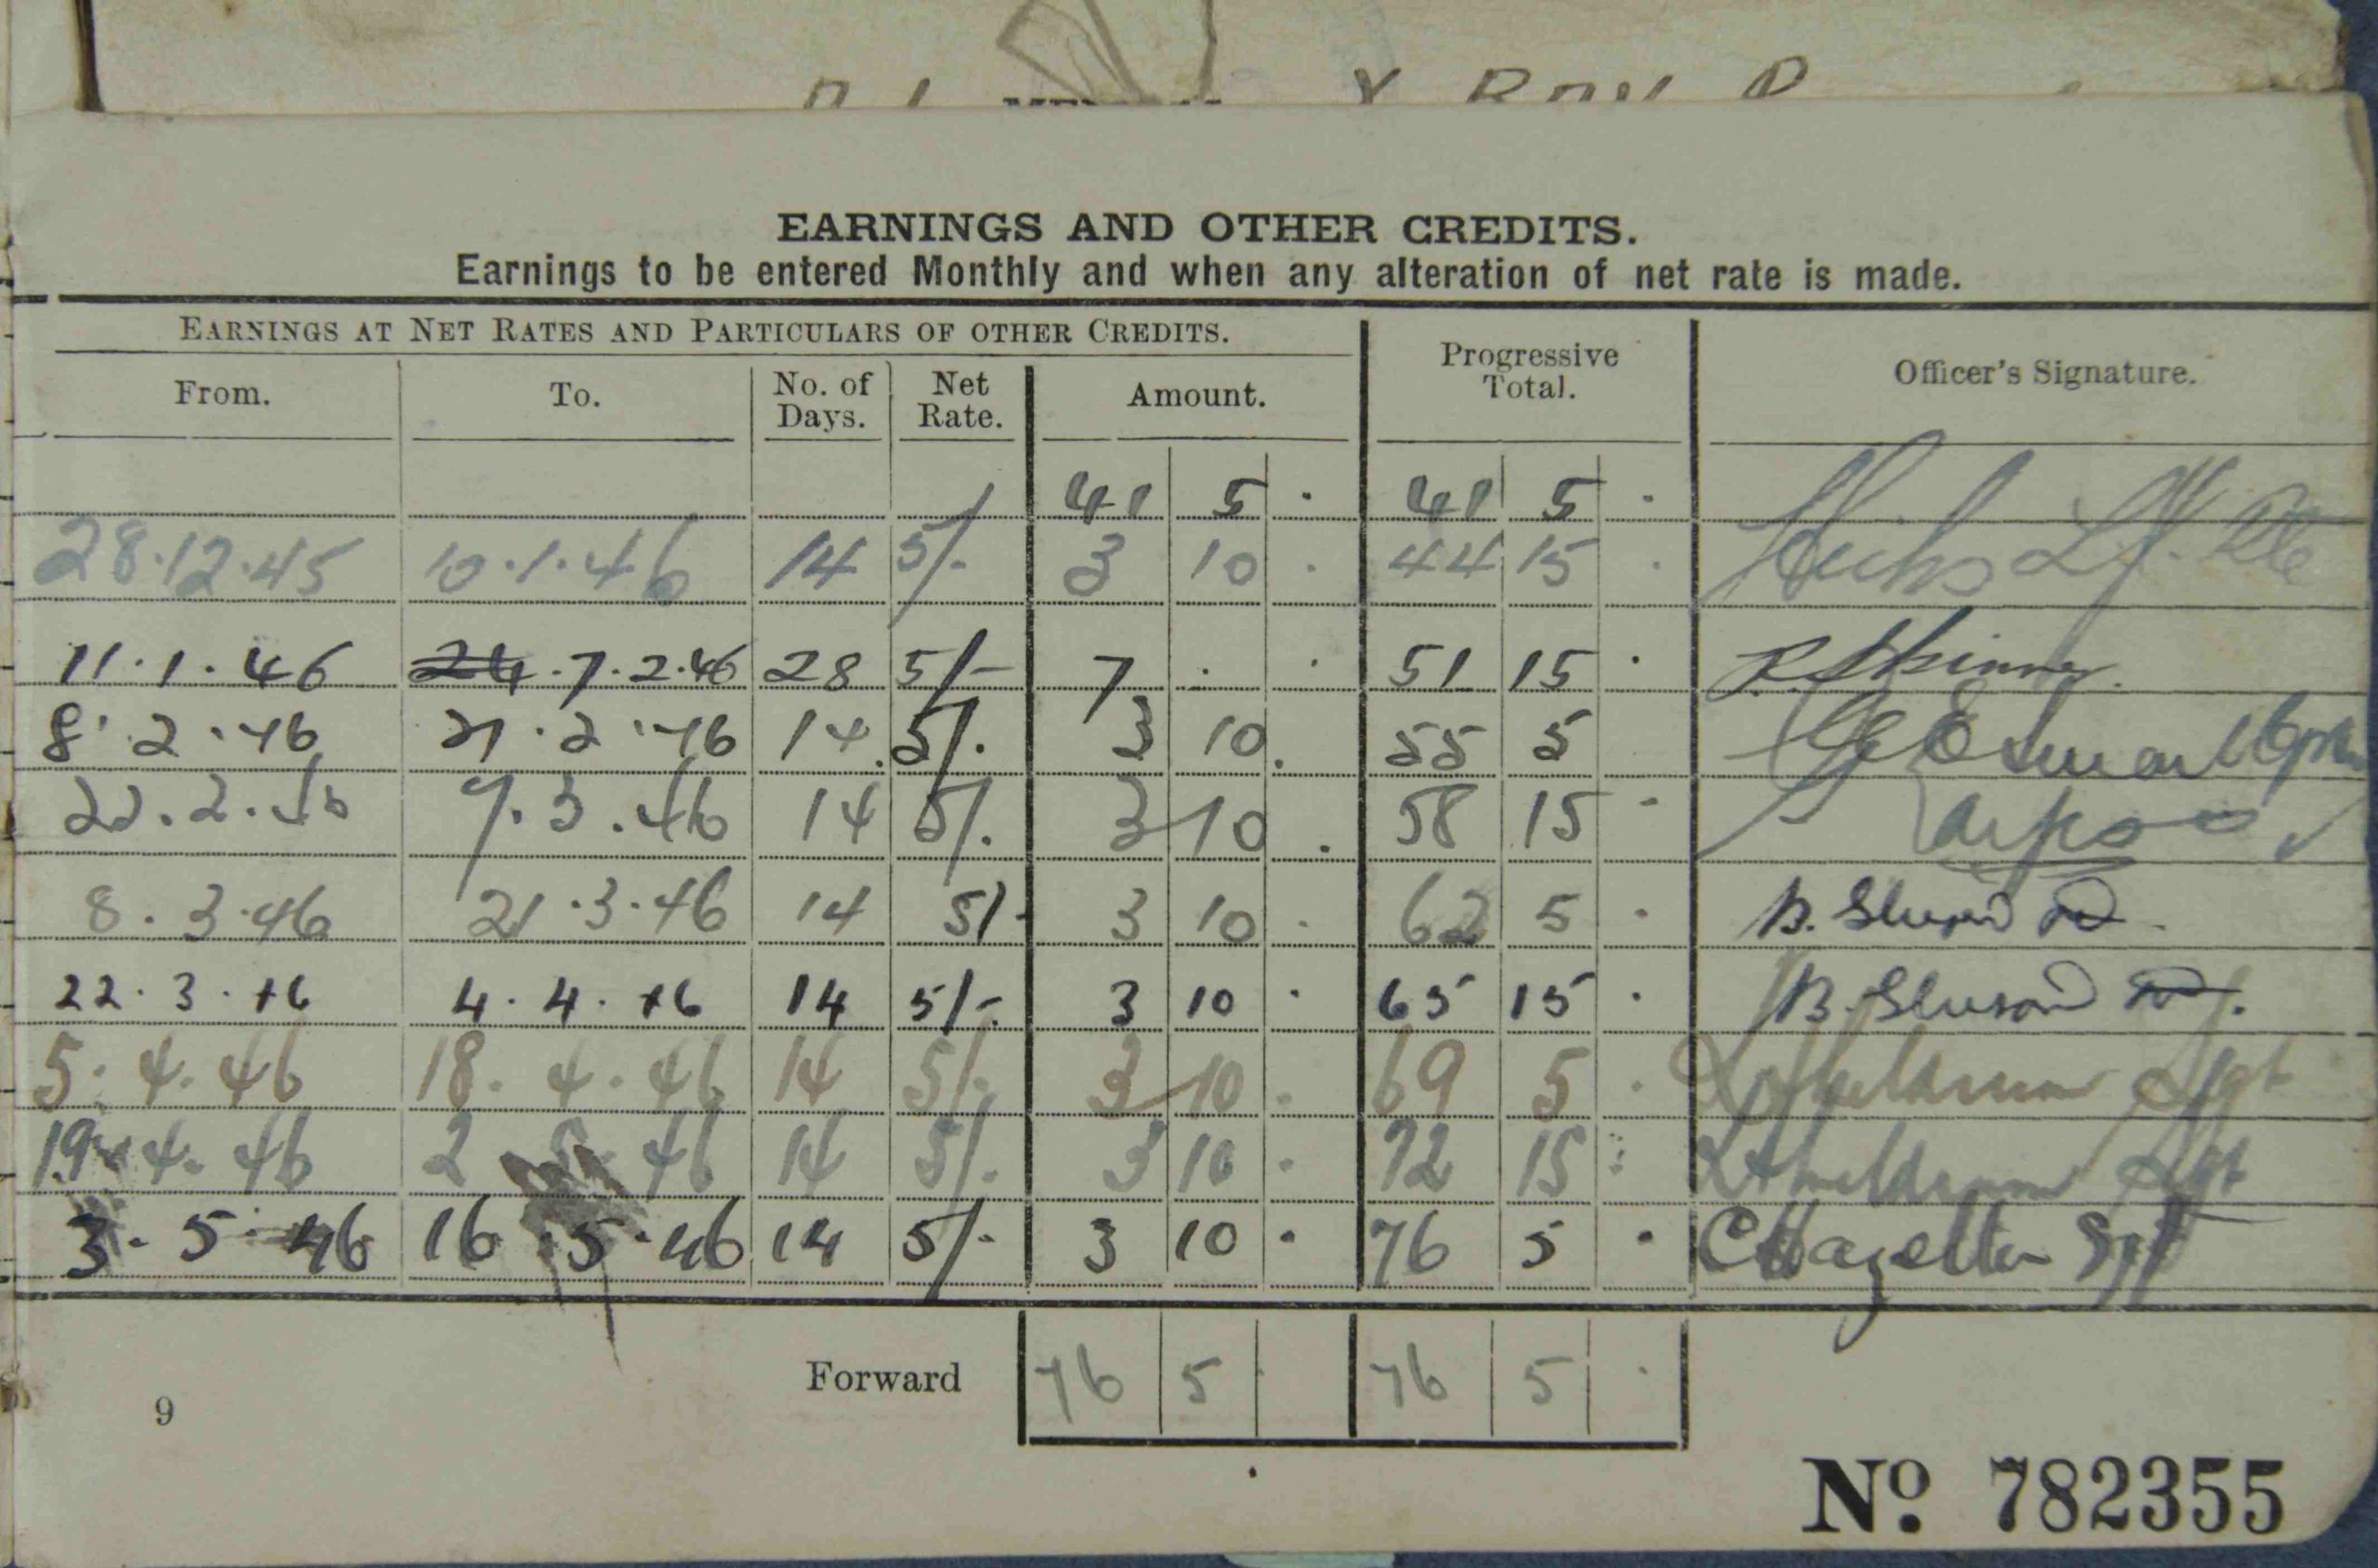 EARNINGS AND OTHER CREDITS.
Earnings to be entered Monthly and when any alteration of net rate is made.
EARNINGS AT NET RATES AND PARTICULARS OF OTHER CREDITS. Progressive Total. Officer's Signature.
From. To. No. of Days. Net Rate. Amount.
41 5 · 41 5 ·
28.12.45 10.1.46 14 5/- 3 10 · 44 15 ·
11.1.46 24.7.2.46 28 5/- 7 · · 51 15 ·
8.2.46 21.2.46 14 5/- 3 10 . 55 5
22.2.46 7.3.46 14 5/- 3 10 . 58 15 -
8.3.46 21.3.46 14 5/- 3 10 · 62 5 ·
22.3.46 4.4.46 14 5/- 3 10 · 65 15 · B.
5.4.46 18.4.46 14 5/- 3 10 . 69 5 . Sgt
19.4.46 2 5 46 14 5/- 3 10 · 72 15 : Sgt
3.5.46 16.5.46 14 5/- 3 10 · 76 5 · Sgt
Forward 76 5 76 5 ·
9
No. 782355